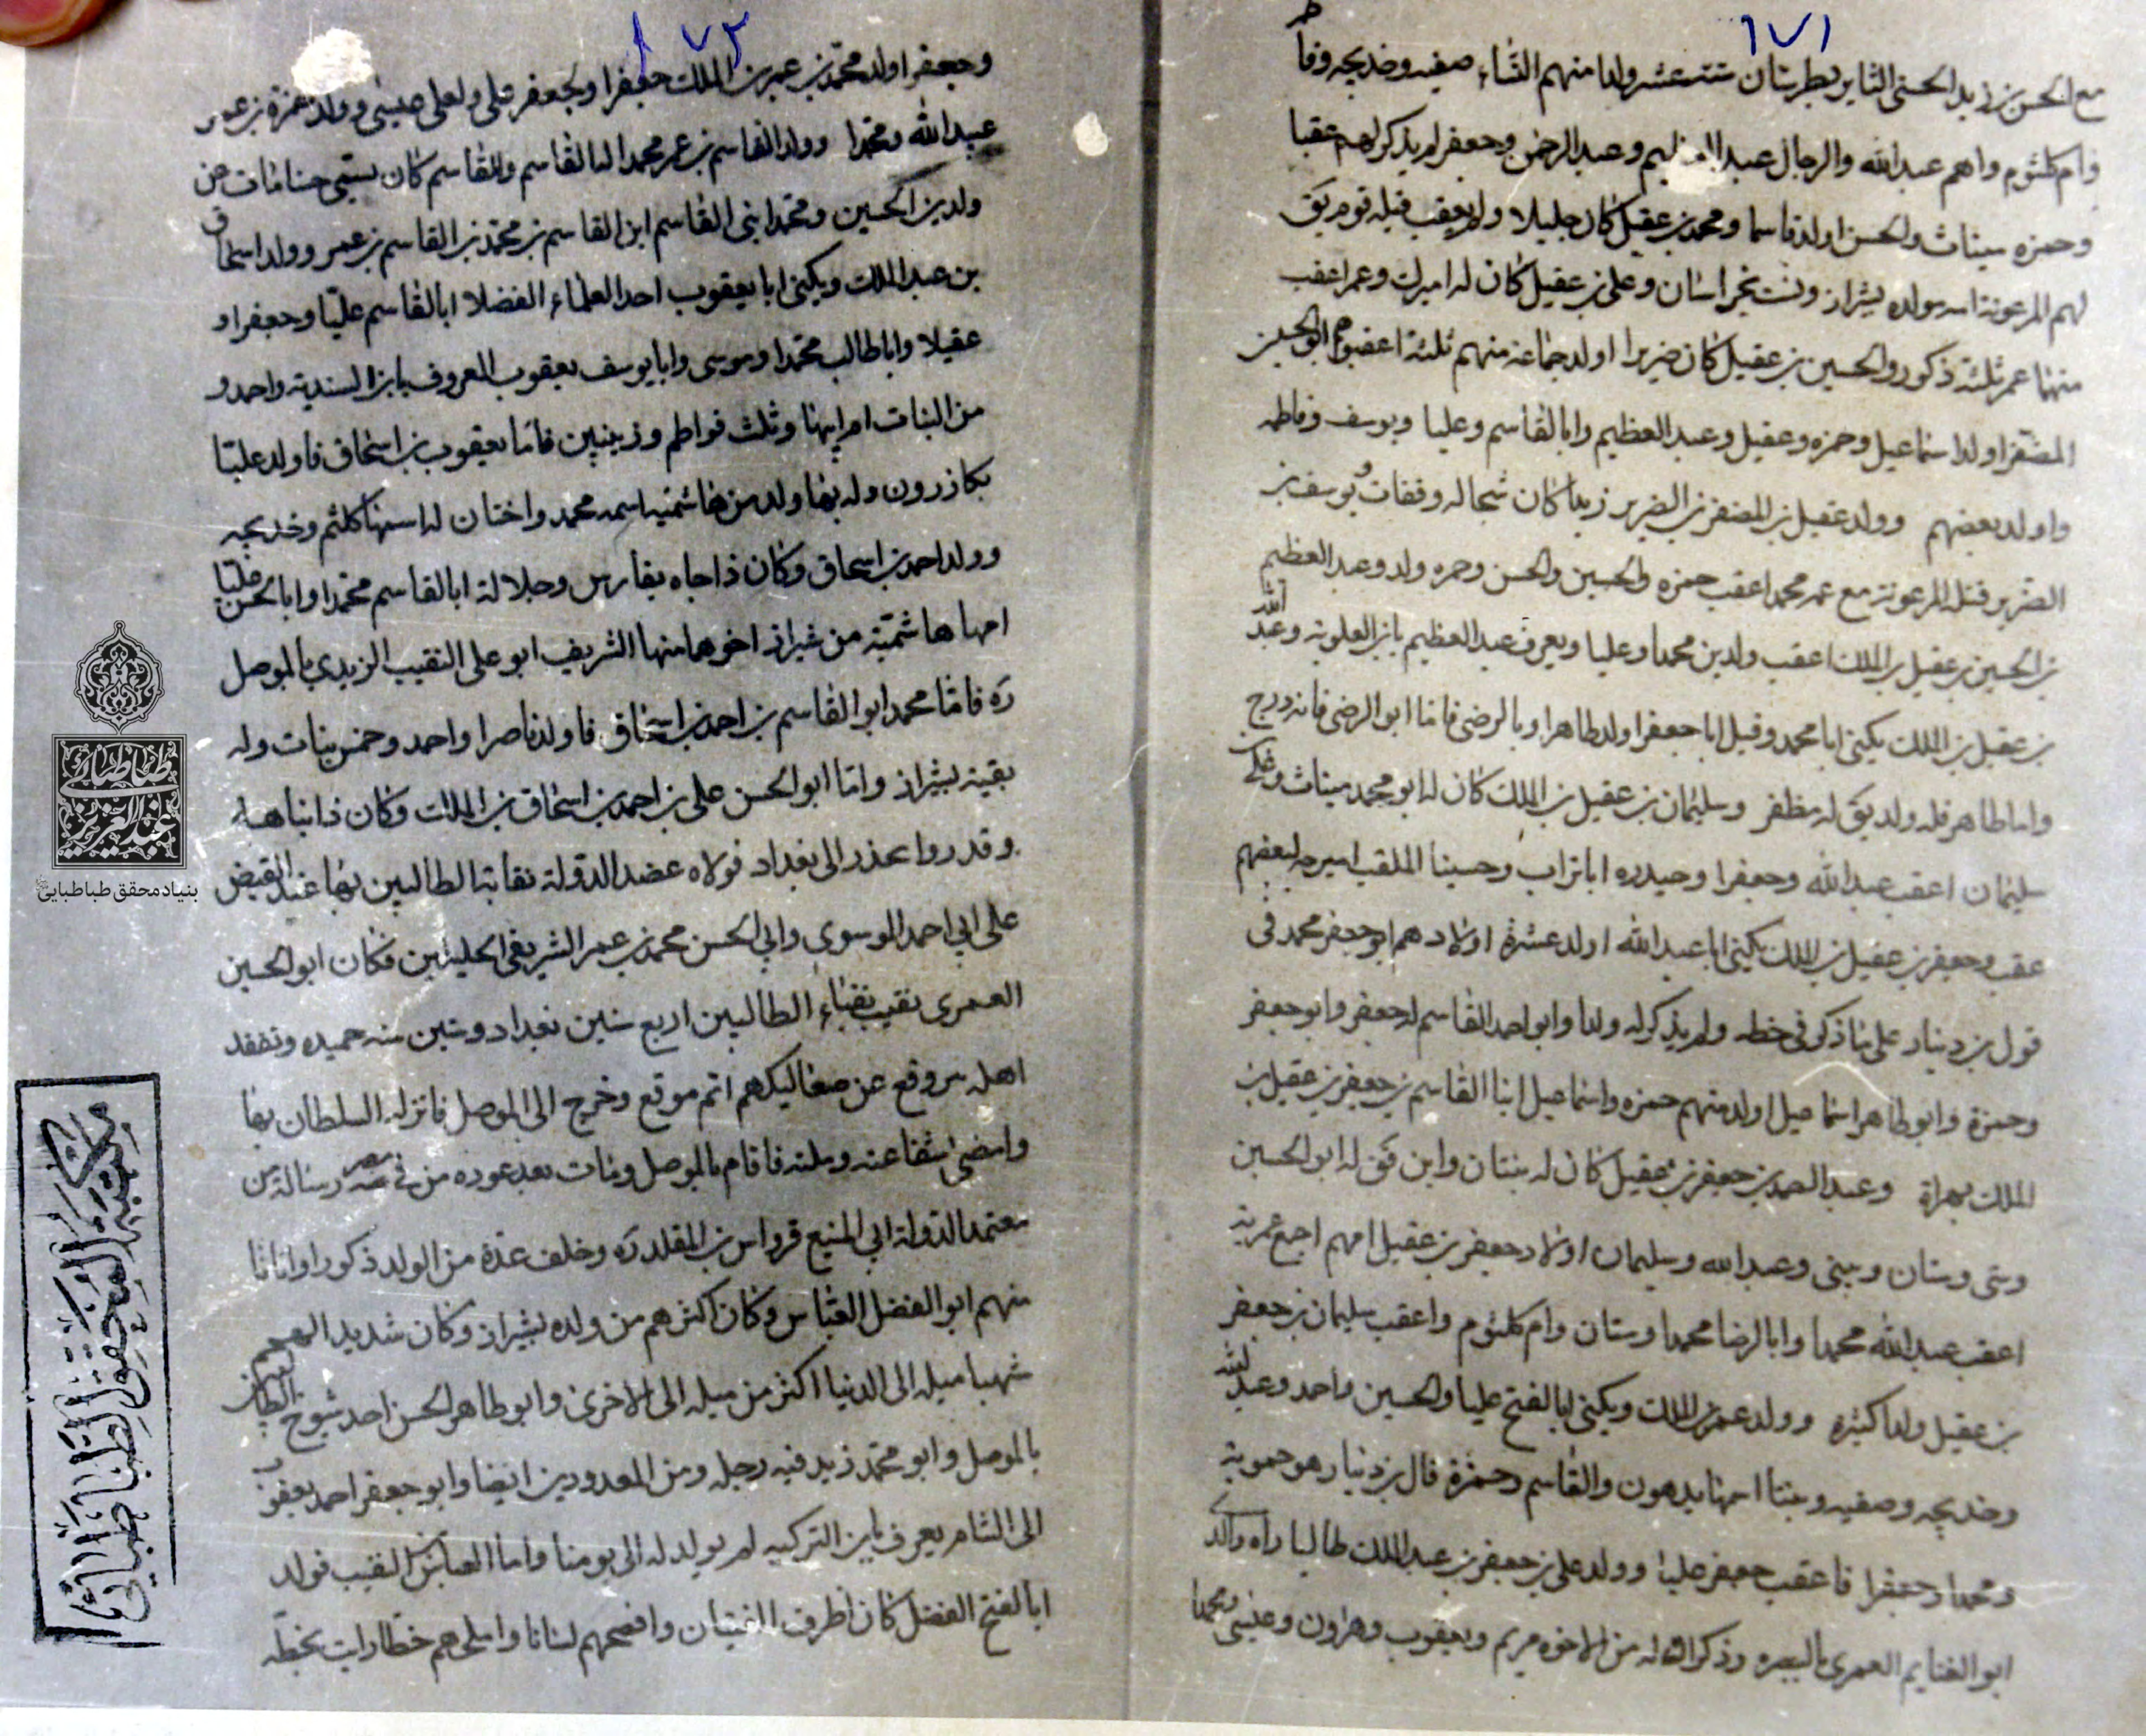 ١٧١
مع الحسن بن زيد الحسنى الثاير بطبرستان ستت عشر ولدا منهم النساء صفيه وخديجه وفا طم
وام كلثوم وامهم عبدالله والرجال عبد العظيم وعبد الرحمن وجعفر لم يذكر لهم عقبا
وحمزه سيناث والحسن اولد قاسما ومحمد بن عقيل كان جليلا ولم يعقب قتله قوم يق
لهم المرعونة اسر سولده بشيراز ونست بخراسان وعلى بن عقيل كان له اميرك وعمر اعقب
منهما عمر ثلثة ذكور والحسين بن عقيل كان ضريرا اولد جماعة منهم ثلثة اعقبوا هم ابو الحسين
المضفر اولد اسماعيل وحمزه وعقيل وعبد العظيم وابا القاسم وعليا ويوسف وفاطمه
واولد بعضهم وولد عقيل بن المضفر بن الضرير زيدا كان شجا له وقفات ويوسف بن
الضرير قتله المرعونة مع عمه محمد اعقب حمزه والحسين والحسن وحمزه ولد وعبد العظيم
بن الحسين بن عقيل بن الملك اعقب ولدين محمدا وعليا ويعرف عبد العظيم بابن العلوية وعبد الله
بن عقيل بن الملك يكنى ابا محمد وقيل ابا جعفر اولد طاهرا وبا الرضى فاما ابو الرضى فانه درج
واما طاهر فله ولد يق له مظفر وسليمان بن عقيل بن الملك كان له ابو محمد ميناث وعلى بن
سليمان اعقب عبدالله وجعفرا وحيدره ابا تراب وحسينا الملقب اميرجه لبعضهم
عقب وجعفر بن عقيل بن الملك يكنى ابا عبدالله اولد عشرة اولاد هم ابو جعفر محمد فى
قول بن دينار على ما ذكر فى خطه ولم يذكر له ولدا وابو احمد القاسم له جعفر وابو جعفر
وحمزة وابو طاهر اسماعيل اولد منهم حمزه واسماعيل ابنا القاسم بن جعفر بن عقيل بن
الملك بهراة وعبد الصمد بن جعفر بن عقيل كان له بنتان وابن يق له ابو الحسين
وستى وستان وبيبى وعبدالله وسليمان اولاد جعفر بن عقيل امهم اجمع عمرية
اعقب عبدالله محمدا وابا الرضا محمدا وستان وام كلثوم واعقب سليمان بن جعفر
بن عقيل ولدا كثيره وولد عمر بن الملك ويكنى ابا الفتح عليا والحسين واحمد وعبد الله
وخديجه وصفيه وبنتا امها بدهون والقاسم وحمزة قال بن دينار هو حموية
ومحمدا وجعفرا فاعقب جعفر عليا وولد على بن جعفر بن عبد الملك طالبا راه والدى
ابو الغنايم العمرى بالبصره وذكر ان له من الاخوه مريم ويعقوب وهارون وعيسى ومحمدا
١٧٢
وجعفرا اولد محمد بن عمر بن الملك جعفرا ولجعفر على ولعلى عيسى وولد حمزة بن عمر
عبيدالله ومحمدا وولد القاسم بن عمر محمدا ابا القاسم وللقاسم كان يسمى حسنا مات عن
ولدين الحسين ومحمد ابنى القاسم ابن القاسم بن محمد بن القاسم بن عمر وولد اسحاق
بن عبد الملك ويكنى ابا يعقوب احد العلماء الفضلا ابا القاسم عليّا وجعفرا و
عقيلا وابا طالب محمدا وموسى وابا يوسف يعقوب المعروف بابن السندية واحمد و
من البنات ام ابيها وثلث فواطم وزينبين فاما يعقوب بن اسحاق فاولد عليّا
بكازرون وله بها ولد من هاشمية اسمه محمد واختان له اسمهما كلثم وخديجه
وولد احمد بن اسحاق وكان ذا جاه بفارس وجلالة ابا القاسم محمدا وابا الحسن عليّا
امها هاشميّة من شيراز اخوهما منها الشريف ابو على النقيب الزيدي بالموصل
ره فاما محمد ابو القاسم بن احمد بن اسحاق فاولد ناصرا واحمد وخمس بنات وله
بقية بشيراز واما ابو الحسن على بن احمد بن اسحاق بن الملك وكان ذا نباهه
وقدروا عذر الى بغداد فولاه عضد الدولة نقابة الطالبيين بها عند القبض
على ابي احمد الموسوي وابي الحسن محمد بن عمر الشريفى الجليلين فكان ابو الحسين
العمرى نقيب نقباء الطالبيين اربع سنين بغداد وسنين سنه حميده وتفقد
اهله من وقع عن صعاليكهم اتم موقع وخرج الى الموصل فانزله السلطان بها
وامضى شفاعته وملته فاقام بالموصل ومات بعد عوده من مصر فى رسالة من
معتمد الدولة ابي المنيع قرواش بن المقلد ره وخلف عدة من الولد ذكورا واناثا
منهم ابو الفضل العباس وكان اكثرهم من ولده بشيراز وكان شديد العجم
شهبا ميله الى الدنيا اكثر من ميله الى الاخرى وابو طاهر الحسن احد شيوخ الطالبيين
بالموصل وابو محمد زيد فيه رجله ومن المعدودين ايضا وابو جعفر احمد يعقوب
الى الشام يعرف بابن التركيه لم يولد له الى يومنا واما العباس بن النقيب فولد
ابا الفتح الفضل كان اظرف الفتيان وافصحهم لسانا واملحهم خطا رايت بخطه
طباطبائى
عبدالعزيز
بنیاد محقق طباطبایی
مكتبة المحقق الطباطبائي